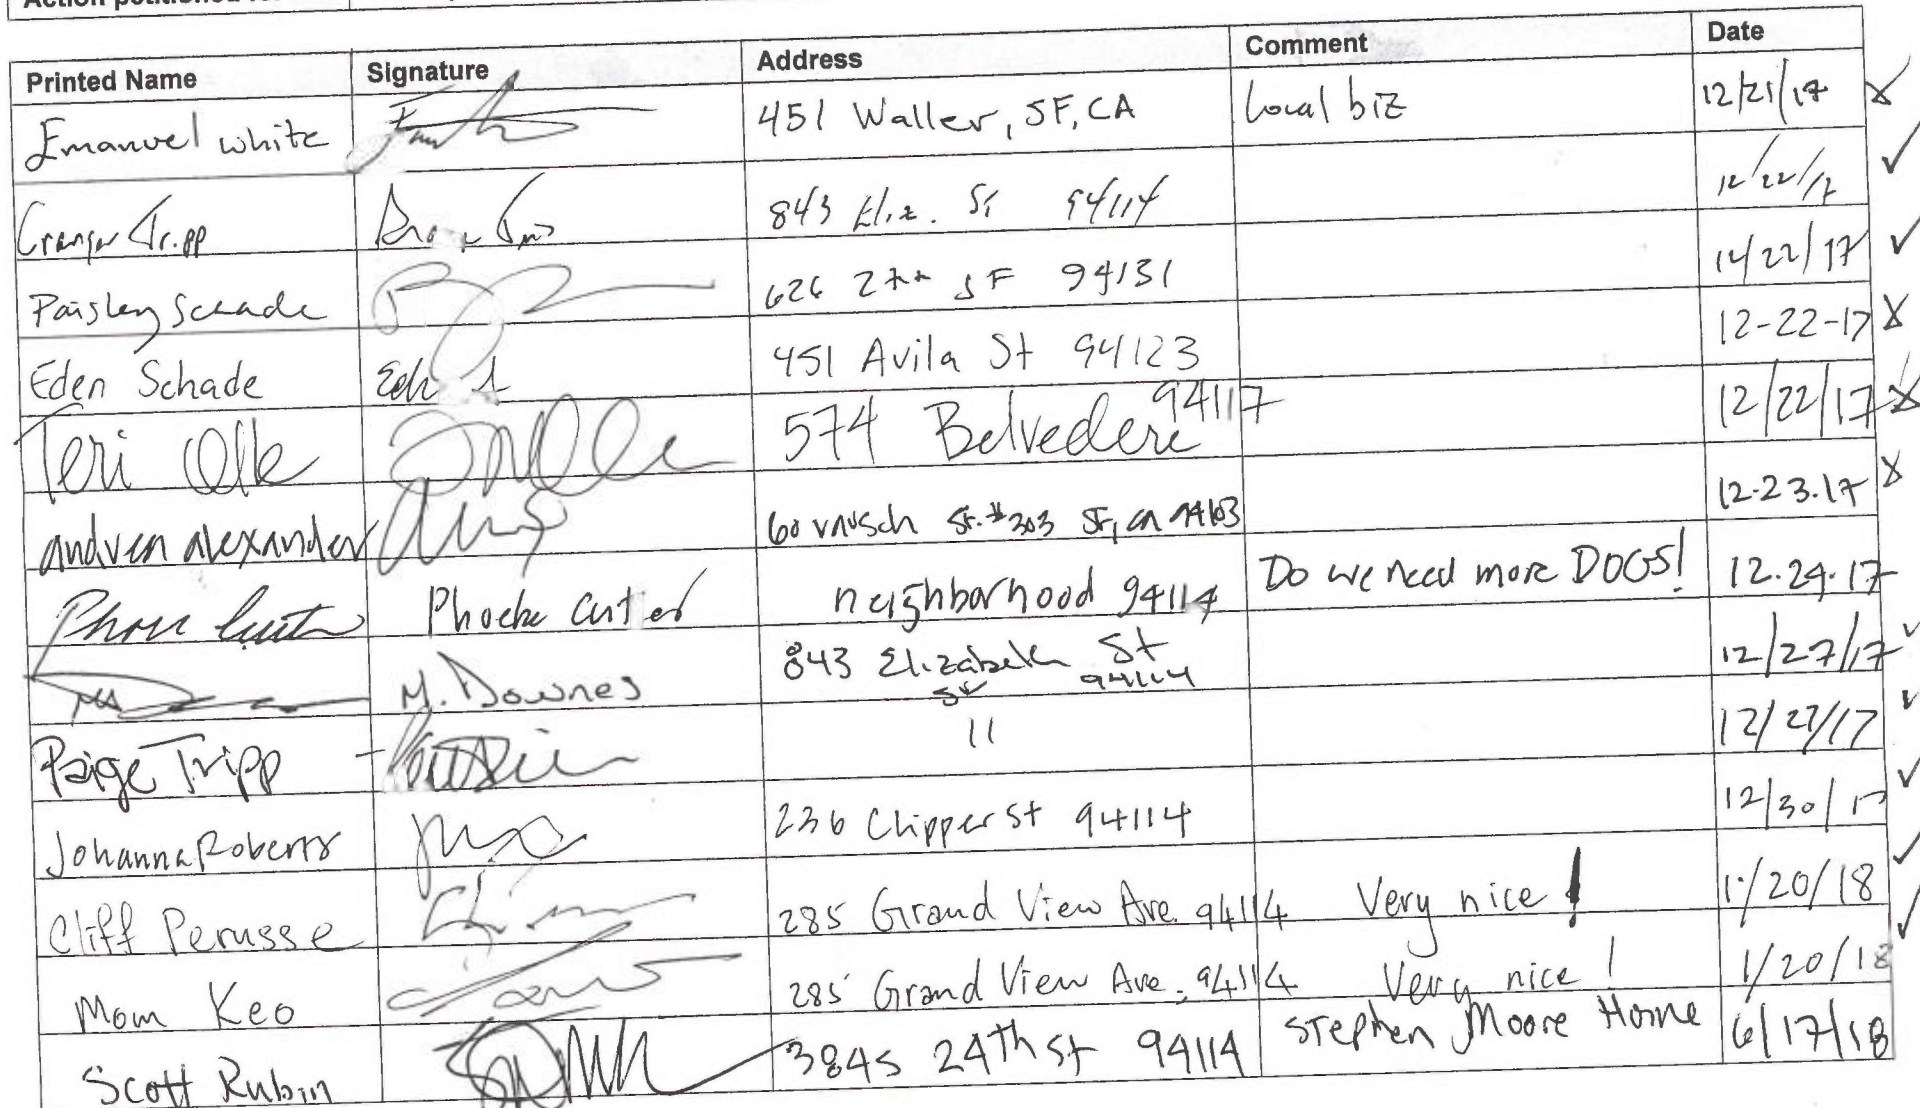 Printed Name Signature Address Comment Date
Emanuel white 451 Waller, SF, CA Local biz 12/21/17
Granger Tripp 843 Eliz. St 94114 12/22/17
Paisley Schade 626 27th SF 94131 12/22/17
Eden Schade 451 Avila St 94123 12-22-17
Teri Olle 574 Belvedere 94117 12/22/17
andrea alexander 60 rausch St. #303 SF, CA 94103 12.23.17
Phoebe Cutler neighborhood 94114 Do we need more DOGS! 12.24.17
M. Downes 843 Elizabeth St 94114 12/27/17
Paige Tripp 11 12/27/17
Johanna Roberts 236 Clipper St 94114 12/30/17
Cliff Perusse 285 Grand View Ave. 94114 Very nice! 1/20/18
Mom Keo 285 Grand View Ave. 94114 Very nice! 1/20/18
Scott Rubin 3845 24th St 94114 Stephen Moore Home 6/17/18